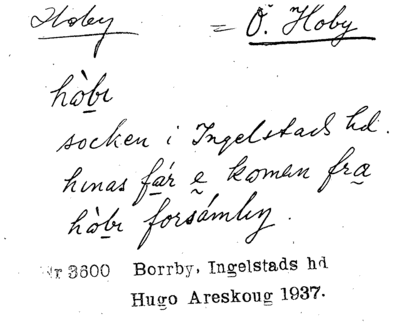 Hoby = Ö. Hoby
hàbı
socken i Ingelstads hd.
hınas fár e komen fra
hàbı forsámlıŋ.
Nr 3600 Borrby, Ingelstads hd
Hugo Areskoug 1937.